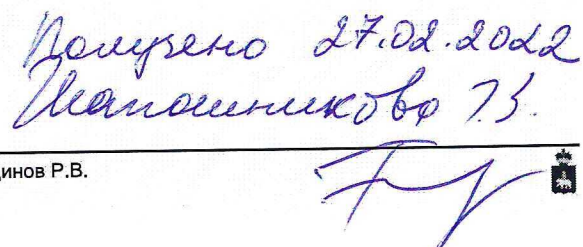 Получено 27.02.2022
Шапошникова
динов Р.В.